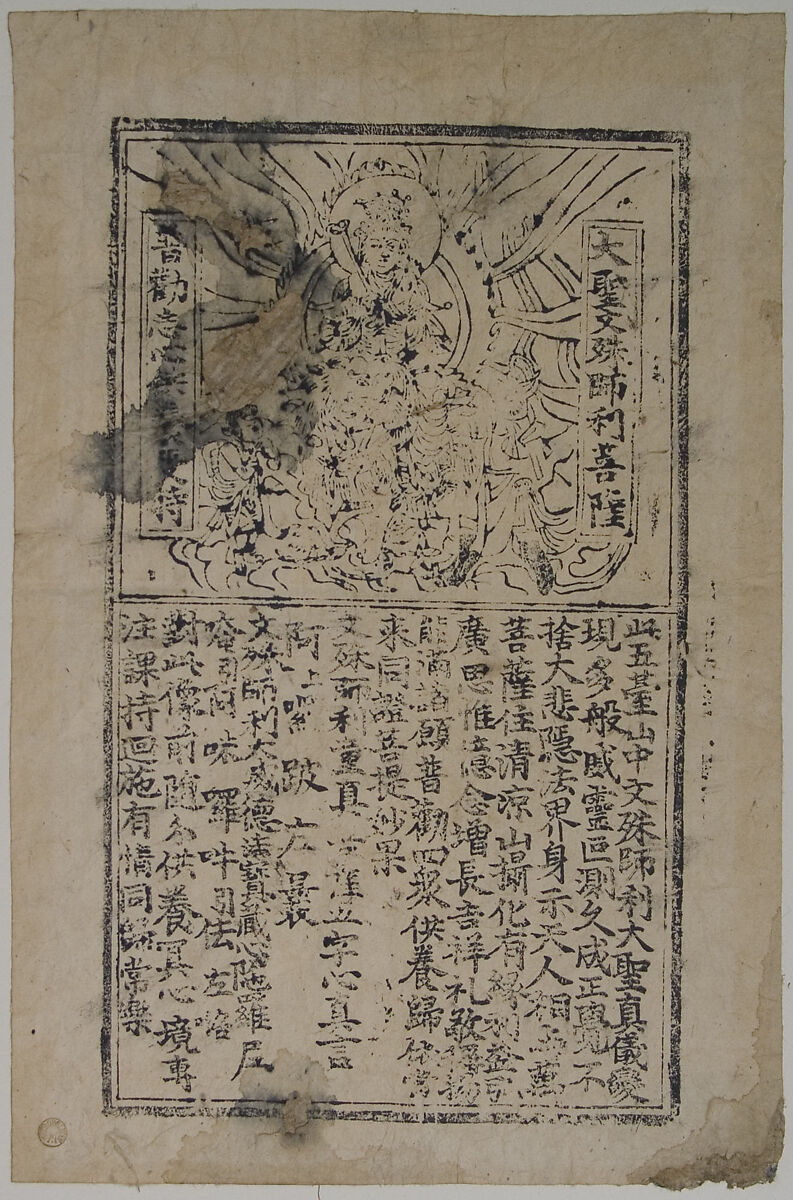 大聖文殊師利菩薩
普勸志心供養受持
此五臺山中文殊師利大聖真儀變
現多般威靈叵測久成正覺不
捨大悲隱法界身示天人相与萬
菩薩住清涼山攝化有緣利益弘
廣思惟憶念增長吉祥礼敬稱揚
能滿諸願普勸四衆供養歸依當
來同證菩提妙果
文殊師利童真 字心真言
阿上 跛 左曩
文殊師利大威德法寶藏心陁羅尼
阿味囉𤙖引佉左咯
對此像前隨分供養冥心一境專
注課持迴施有情同歸常樂